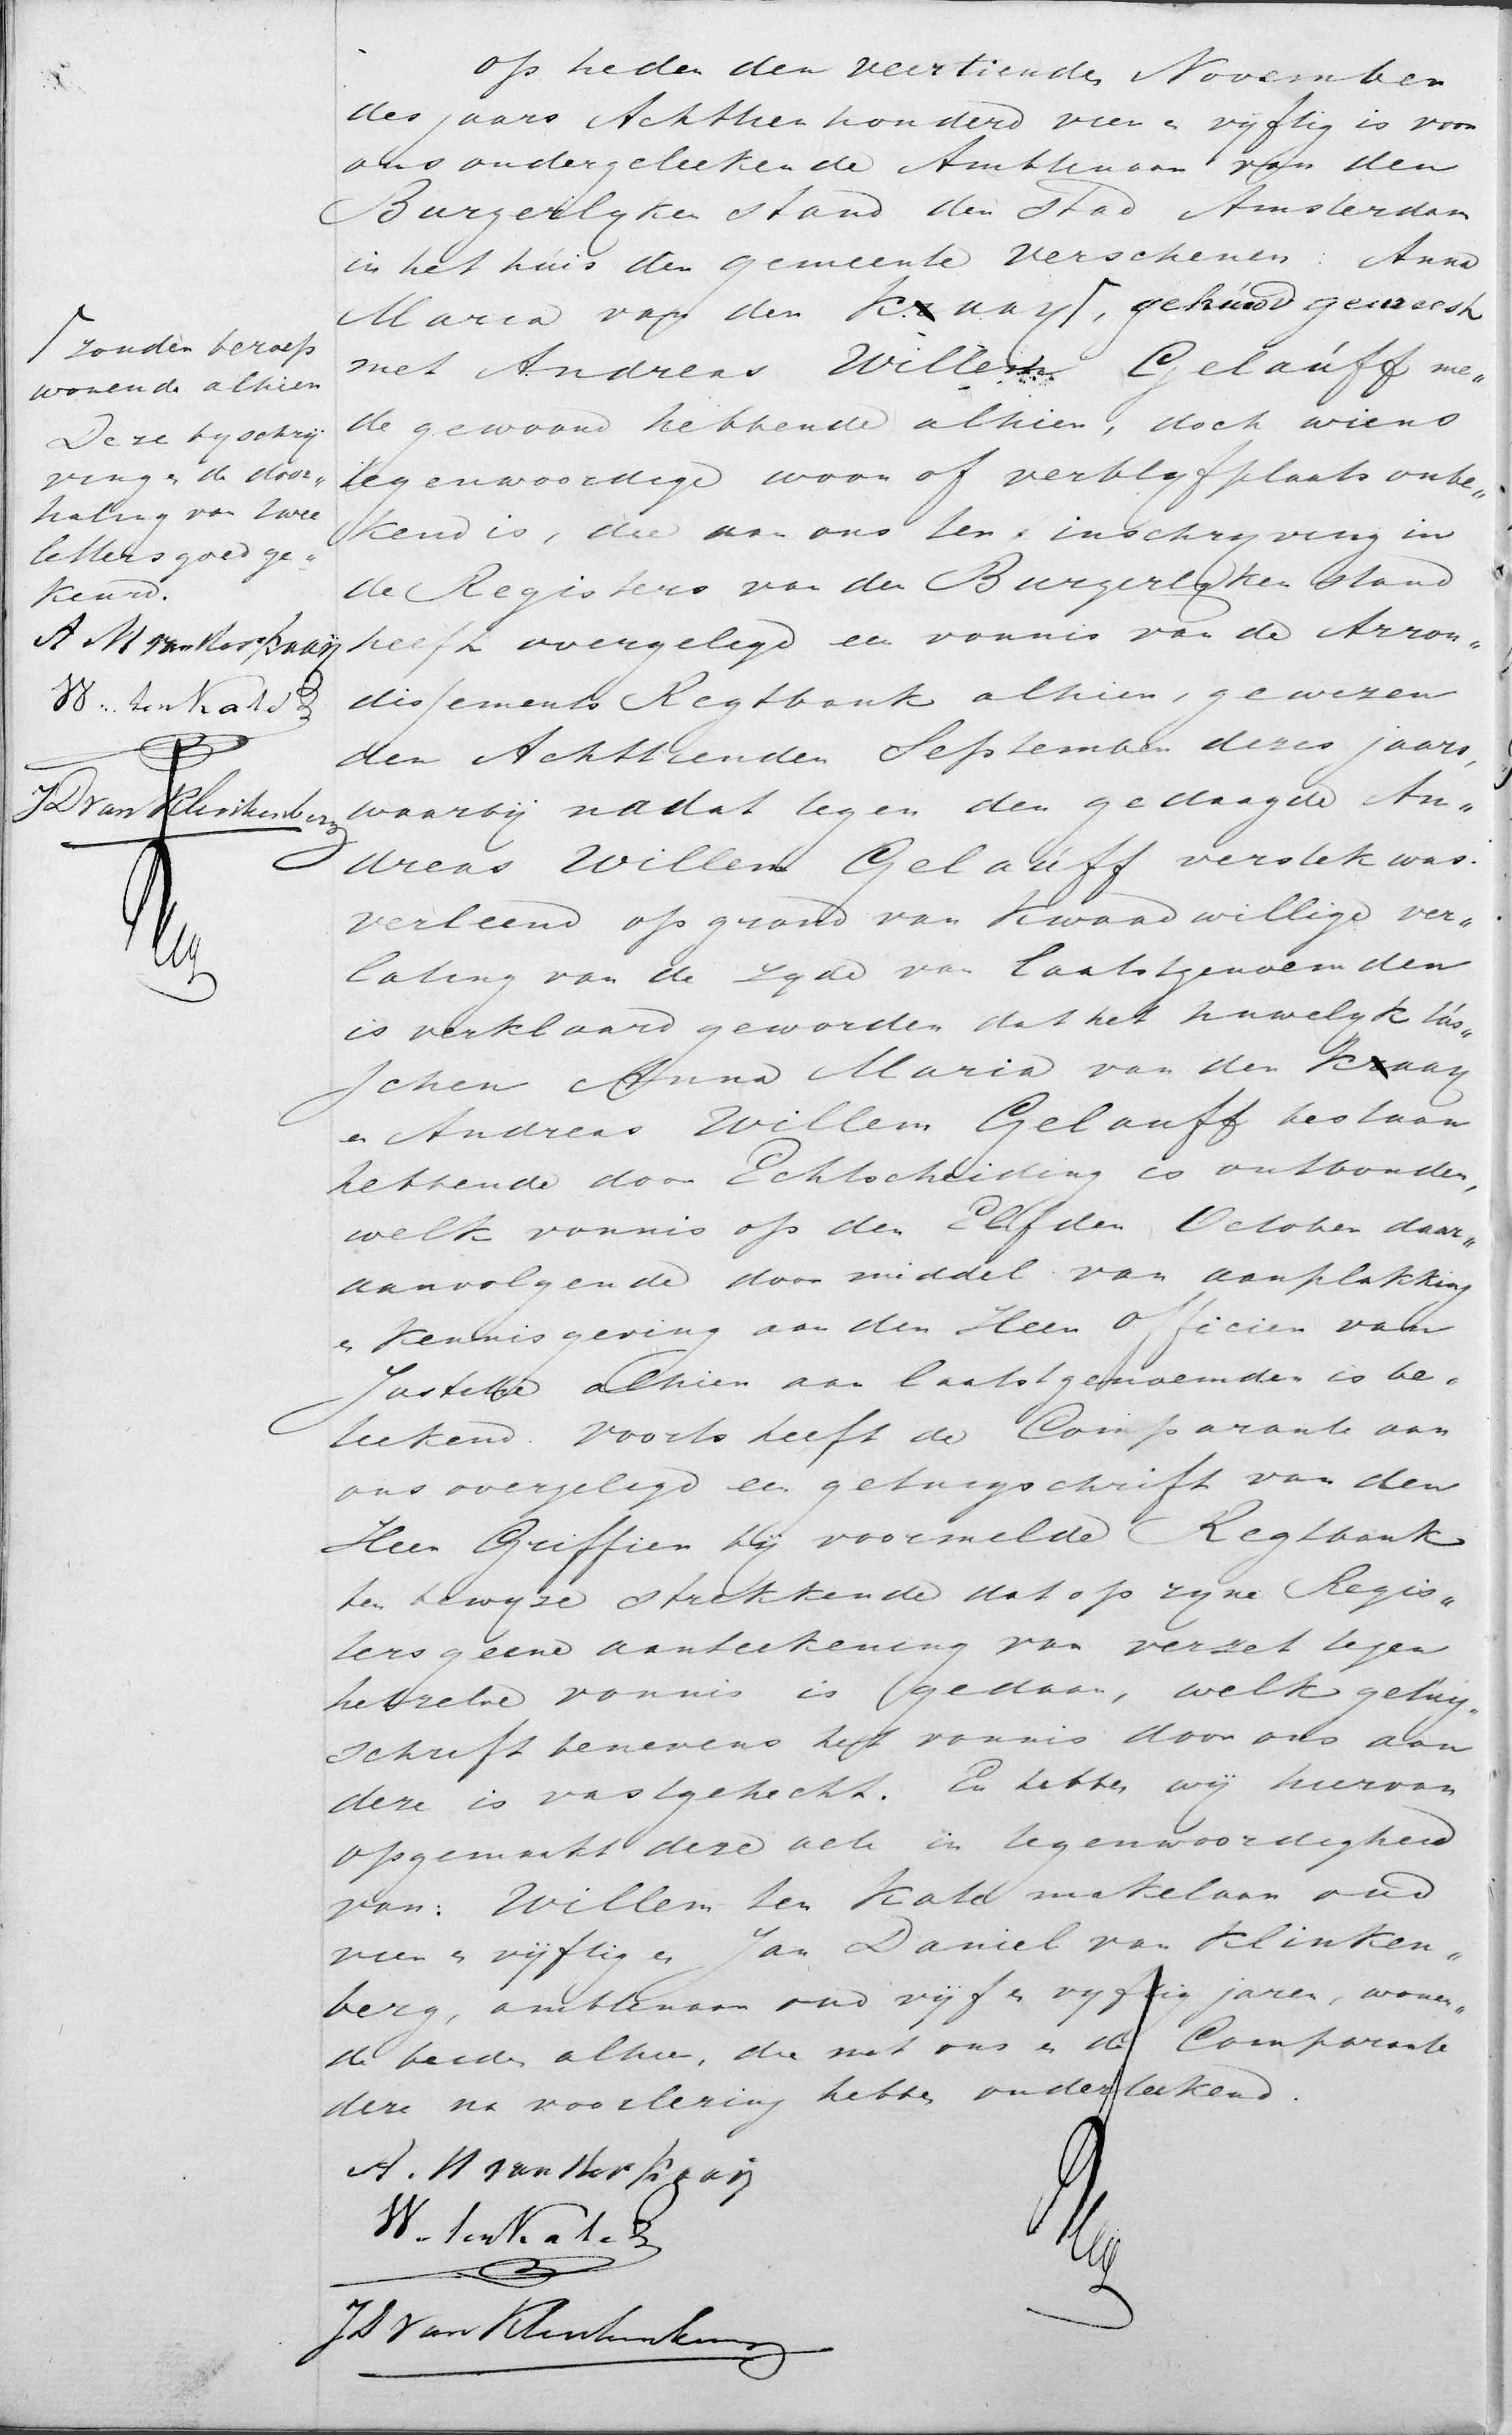 op heden den veertienden November
des jaars Achttien honderd vier en vyftig is voor
ons ondergeteekende Ambtenaar van den
Burgerlyken stand der Stad Amsterdam
in het huis der gemeente verschenen: Anna
Maria van der Kraay⌈, gehuwd geweest
met Andreas Willem Gelauff me„
de gewoond hebbende alhier, doch wiens
tegenwoordige woon of verblyfplaats onbe„
kend is, die aan ons ter inschryving in
de Registers van den Burgerlyken stand
heeft overgelegd een vonnis van de Arron„
dissements Regtbank alhier, gewezen
den Achttienden September dezes jaars,
waarbij nadat tegen den gedaagde An„
dreas Willem Gelauff verstek was
verleend op grond van kwaadwillige ver„
lating van de zyde van laatstgenoemden
is verklaard geworden dat het huwelyk tus„
schen Anna Maria van der Kraay
en Andreas Willem Gelauff bestaan
hebbende door Echtscheiding is ontbonden,
welk vonnis op den Elfden October daar„
aanvolgende door middel van aanplakking
en kennisgeving aan den Heer Officier van
Justitie alhier aan laatstgenoemden is be„
teekend. Voorts heeft de Comparante aan
ons overgelegd een getuigschrift van den
Heer Griffier bij voormelde Regtbank
ten bewyze strekkende dat op zyne Regis„
ters geene aanteekening van verzet tegen
hetzelve vonnis is gedaan, welk getuig„
schrift benevens het vonnis door ons aan
deze is vastgehecht. En hebben wij hiervan
opgemaakt deze acte in tegenwoordigheid
van: Willem ten Kate makelaar oud
vier en vijftig en Jan Daniel van Klinken„
berg, ambtenaar oud vijf en vyftig jaren, wonen„
de beiden alhier, die met ons en de Comparante
deze na voorlezing hebben onderteekend.
A. M van der Kaaij
W. ten Kate
JD van Klinkenberg
⌈ zonder beroep
wonende alhier
Deze byschrij
ving en de door„
haling van twee
letters goed ge„
keurd.
A M van der Kaaij
W. ten Kate
JD van Klinkenberg